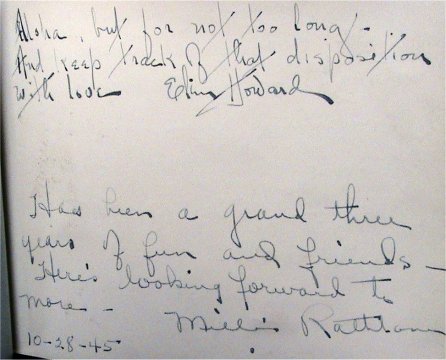 Aloha, but for not too long -
And keep track of that disposition
with love Howard
Has been a grand three
years of fun and friends -
Here's looking forward to
more -
10-28-45